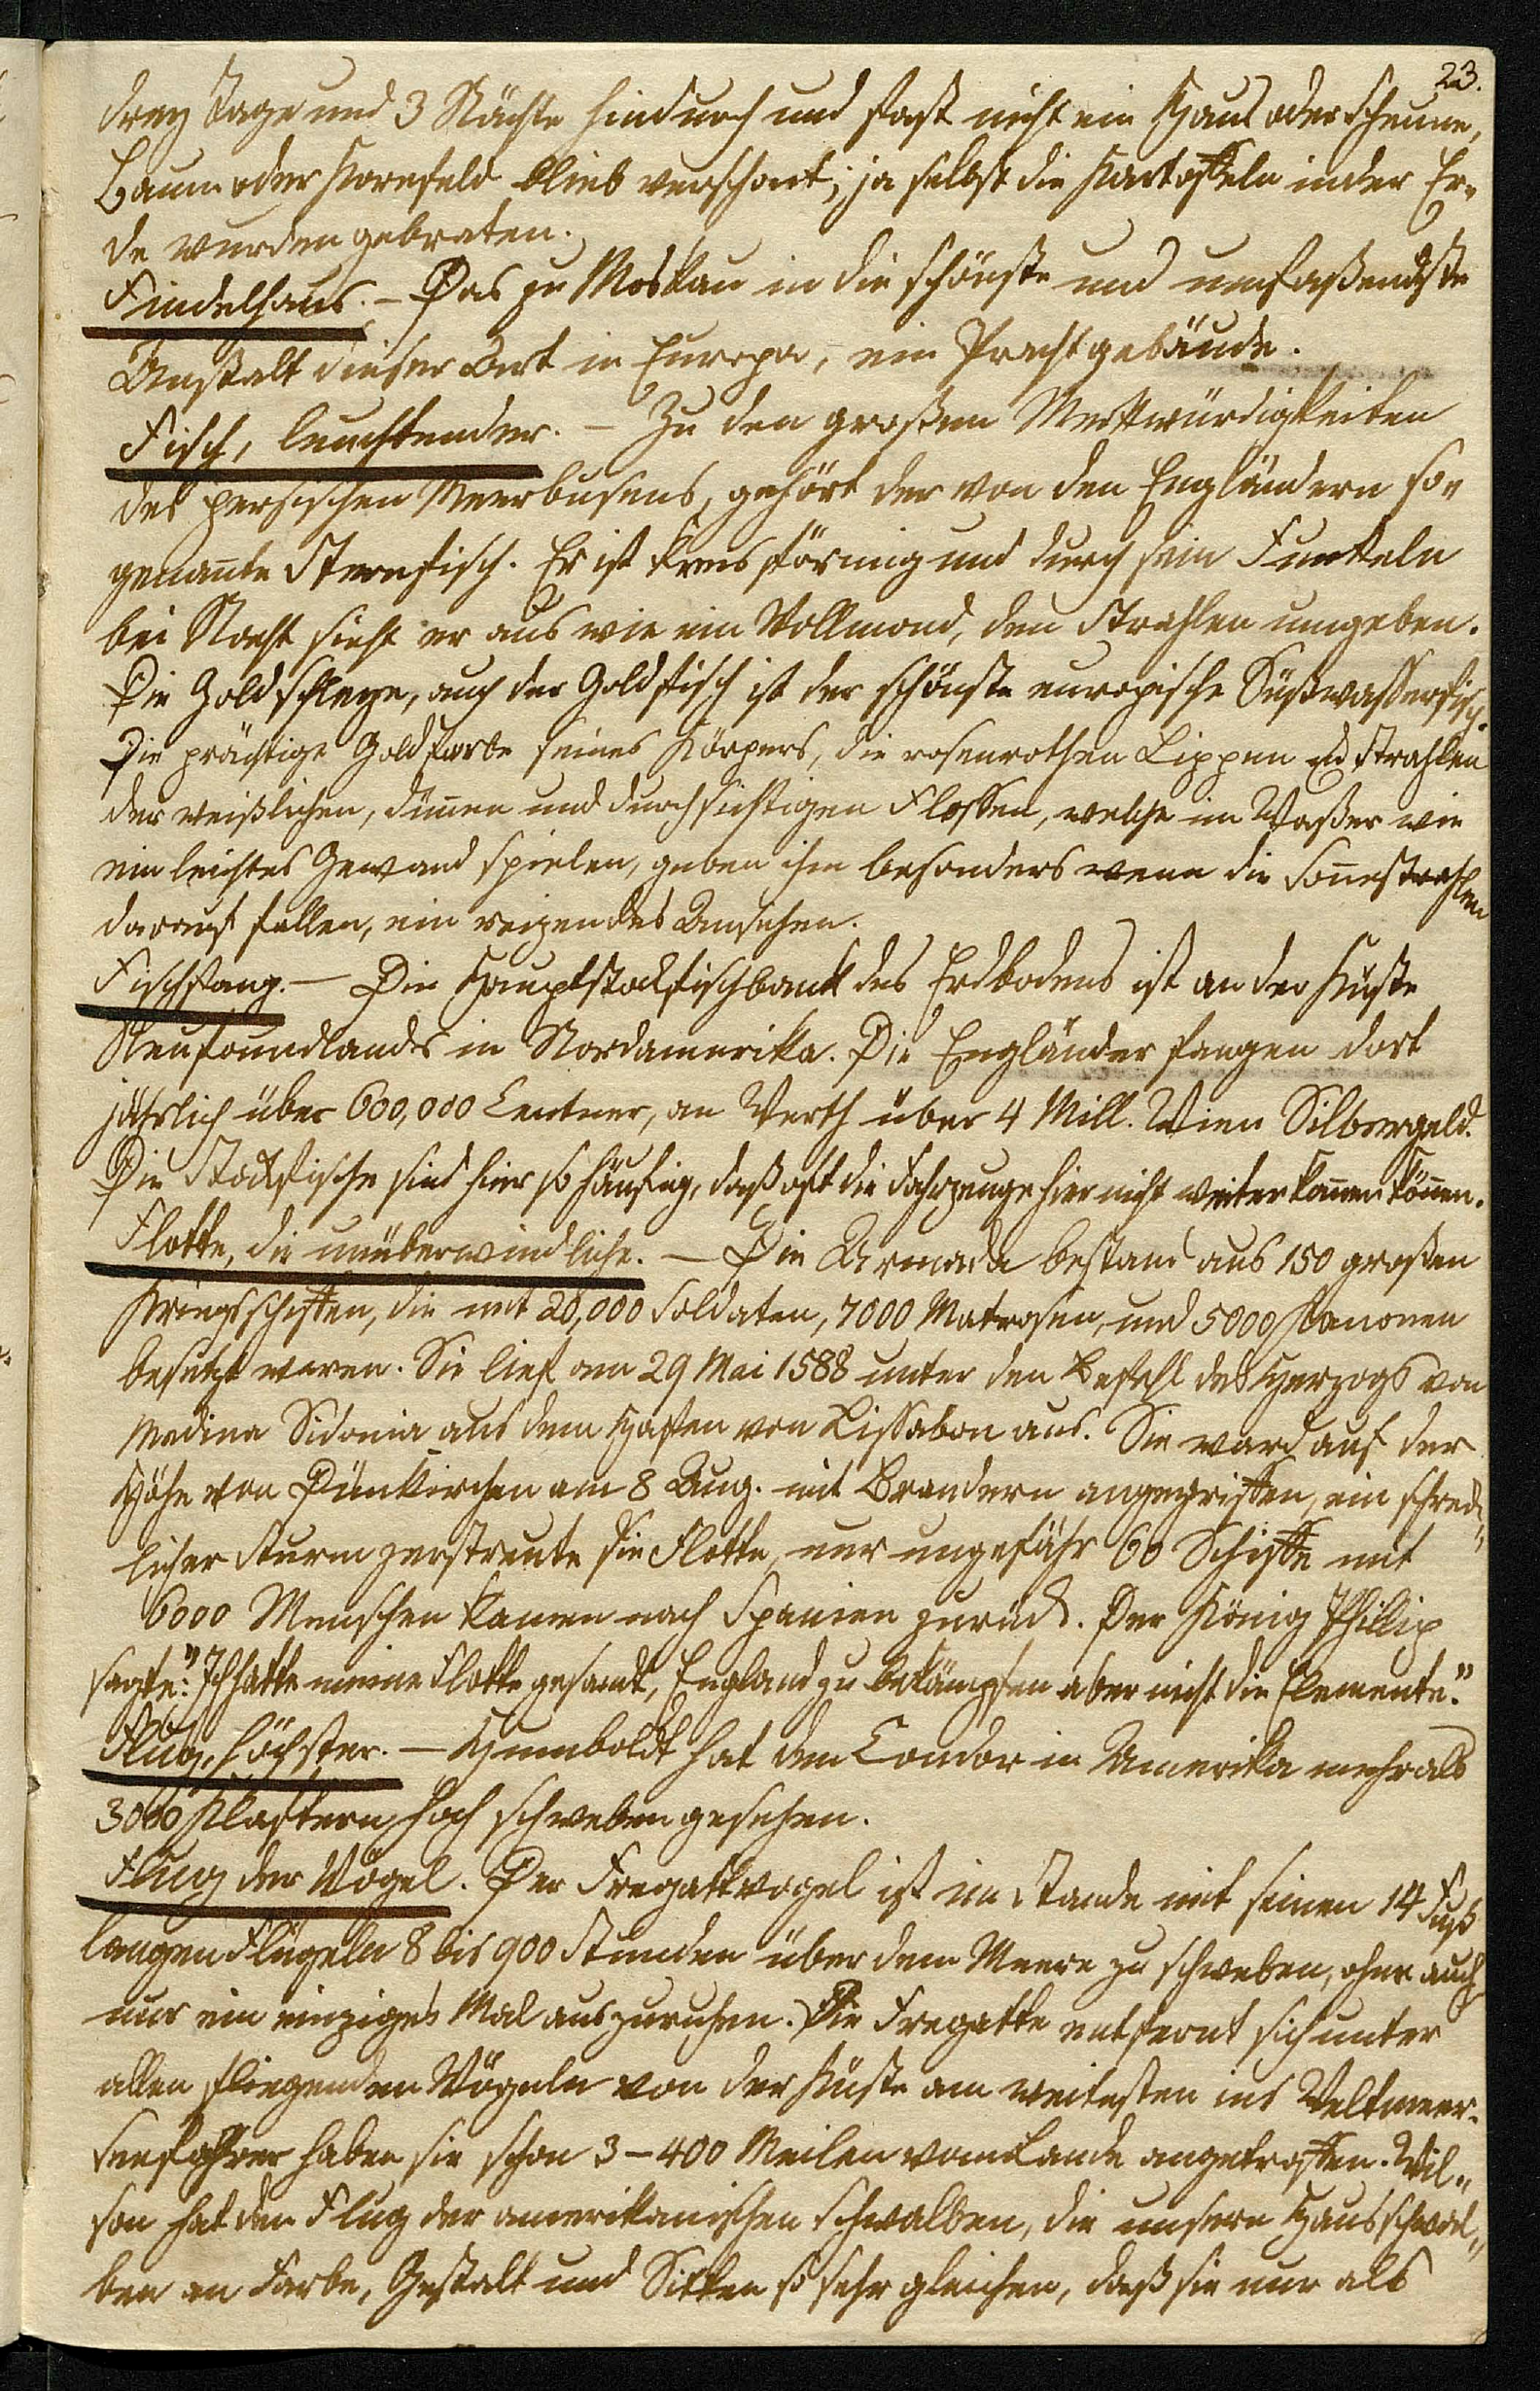 23.
drey Tage und 3 Nächte hindurch und fast nicht ein Haus oder Scheune,
Baum oder Kornfeld blieb verschont; ja selbst die Kartoffeln in der Er„
de wurden gebraten.
Findelhaus. – Das zu Moskau in die schönste und umfaßendste
Anstalt dieser Art in Europa, ein Prachtgebäude.
Fisch, leuchtender. – Zu den großen Merkwürdigkeiten
des persischen Meerbusens, gehört der von den Engländern so„
genannte Sternfisch. Er ist kreisförmig und durch sein Funkeln
bei Nacht sieht er aus wie ein Vollmond, den Strahlen umgeben.
Die Goldschleye, auch der Goldfisch ist der schönste europische Süßwasserfisch.
Die prächtige Goldfarbe seines Körpers, die rosenrothen Lippen und Strahlen
der weißlichen, dünnen und durchsichtigen Flossen, welche im Waßer wie
ein leichtes Gewand spielen, geben ihm besonders wenn die Sonnestrahlen
darauf fallen, ein reizendes Ansehen.
Fischfang. – Die Hauptstockfischbank des Erdbodens ist an der Küste
Neufoundlands in Nordamerika. Die Engländer fangen dort
jährlich über 600,000 Centner, an Werth über 4 Mill. Wien Silbergeld.
Die Stockfische sind hier so häufig, daß oft die Fahrzeuge hier nicht weiter kommen können.
Flotte, die unüberwindliche. – Die Armada bestand aus 150 großen
Kriegsschiffen, die mit 20,000 Soldaten, 7000 Matrosen, und 5000 Kanonen
besetzt waren. Sie lief am 29 Mai 1588 unter den Befehl des Herzogs von
Medina Sidonia aus dem Hafen von Lissabon aus. Sie ward auf der
Höhe von Dünkirchen am 8 Aug. mit Brandern angegriffen, ein schreck„
licher Sturm zerstreute die Flotte, nur ungefähr 60 Schiffe mit
6000 Menschen kamen nach Spanien zurück. Der König Phillip
sagte: "Ich hatte meine Flotte gesandt, England zu bekämpfen aber nicht die Elemente."
Flug, höchster. – Humboldt hat den Condor in Amerika mehr als
3000 Klaftern hoch schweben gesehen.
Flug der Vögel. Der Fregattvogel ist im Stande mit seinen 14 Fuß
langen Flügeln 8 bis 900 Stunden über dem Meere zu schweben, ohne auch
nur ein einziges Mal auszuruhen. Die Fregatte entfernt sich unter
allen fliegenden Vögeln von der Küste am weitesten ins Weltmeer.
Seefahrer haben sie schon 3–400 Meilen vom Lande angetroffen. Wil„
son hat den Flug der amerikanischen Schwalben, die unsern Hausschwal„
ben an Farbe, Gestalt und Sitten so sehr gleichen, daß sie nur als